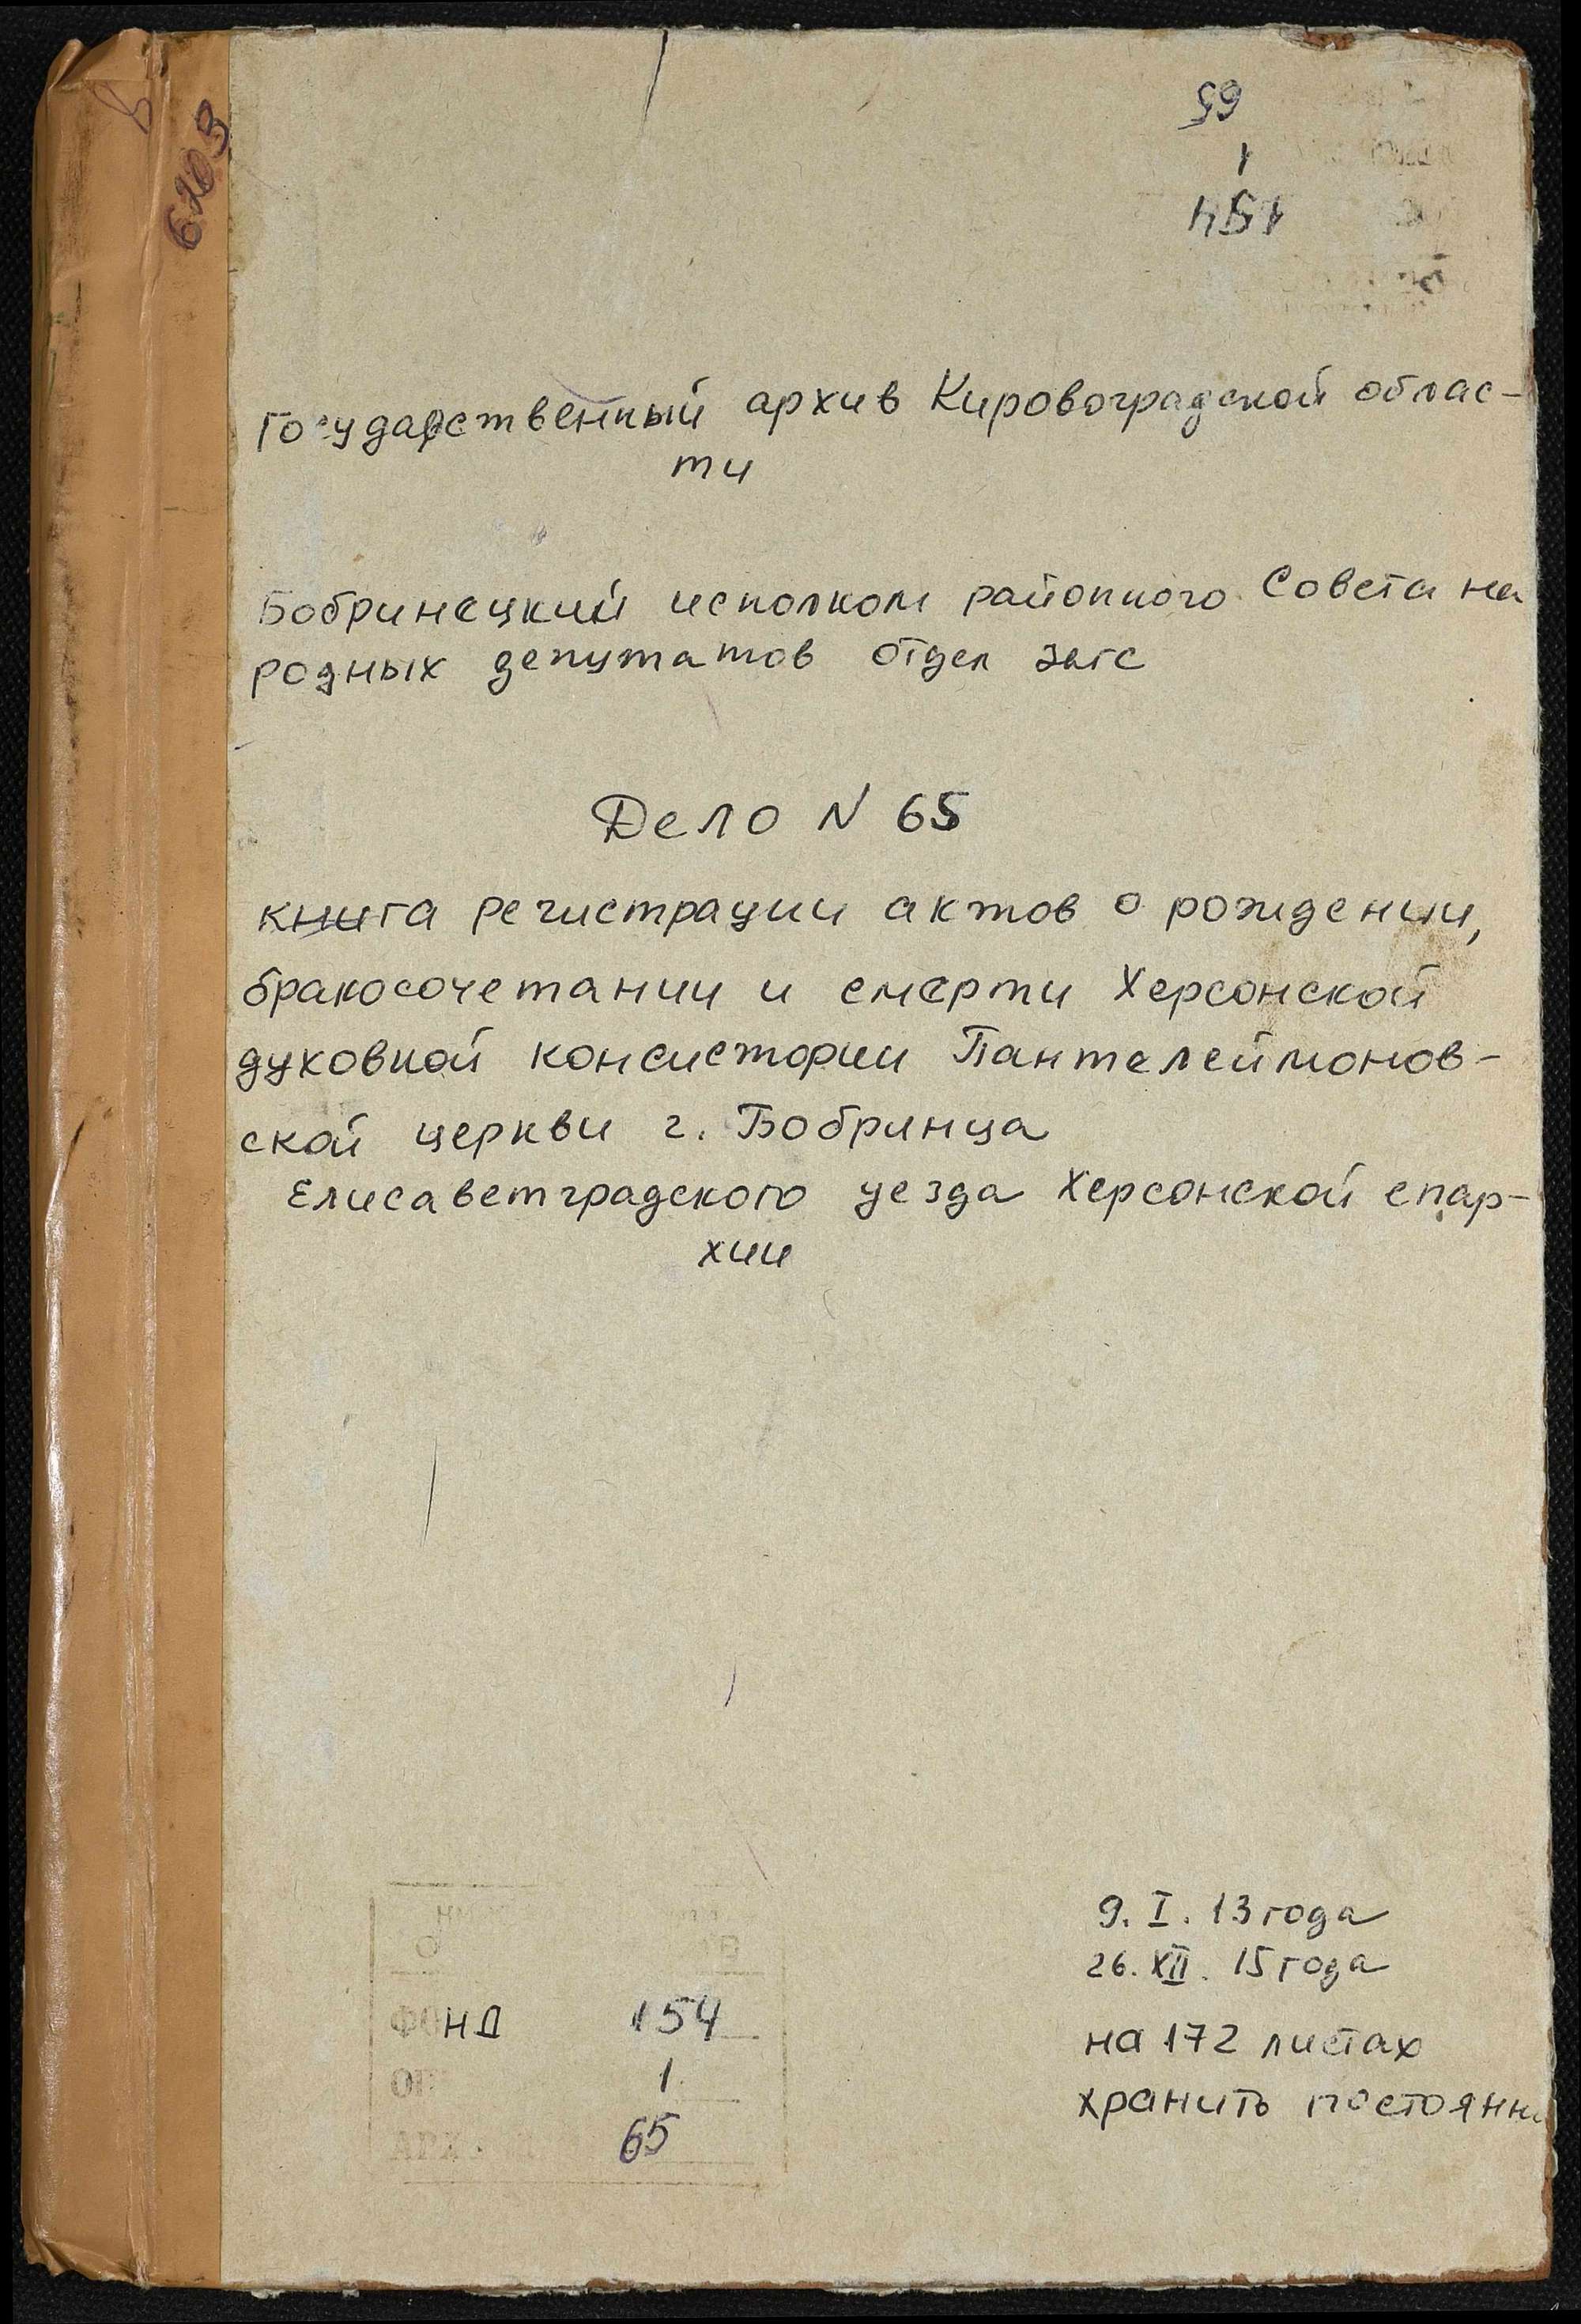 65
1
154
6203
Государственный архив Кировоградской облас-
ти
Бобринецкий исполком районного Совета на
родных депутатов отдел загс
Дело N 65
книга регистрации актов о рождении,
бракосочетании и смерти Херсонской
духовной консистории Пантелеймонов-
ской церкви г. Бобринца
Елисаветградского уезда Херсонской епар-
хии
9. I. 13 года
26. XII. 15 года
ФОНД 154
1
65
на 172 листах
хранить постоянно